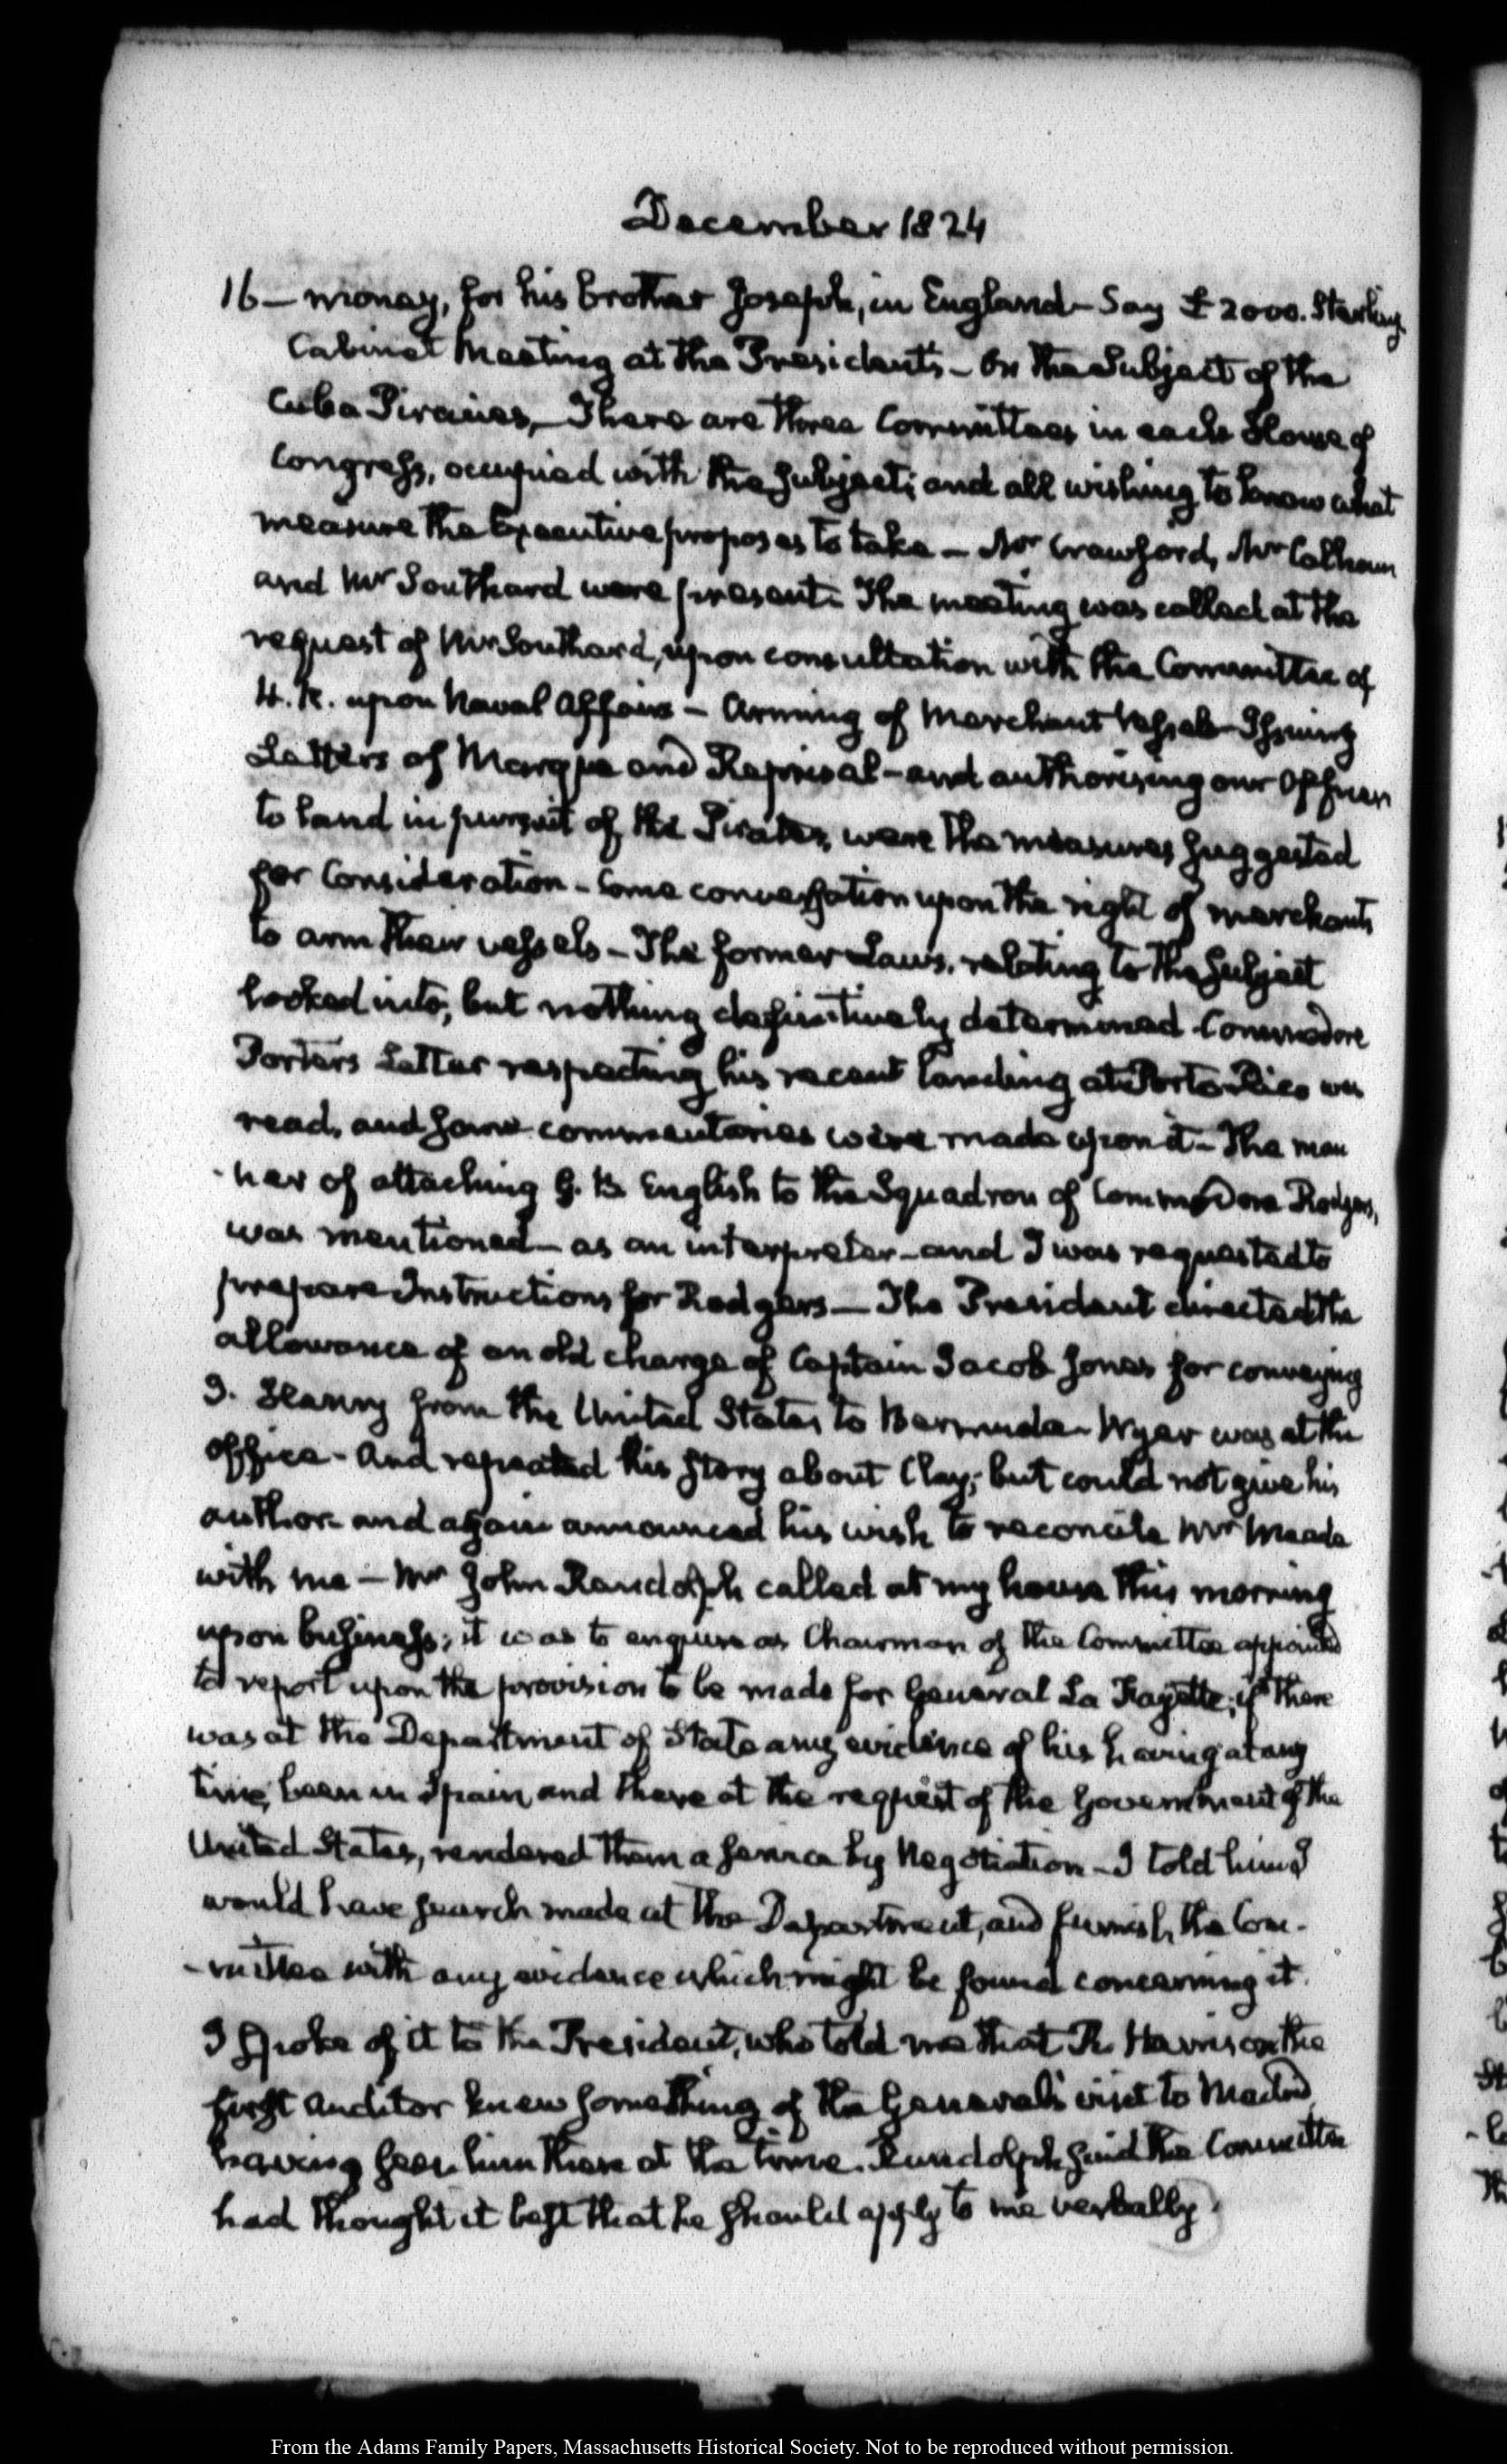 December 1824
16 — money, for his brother Joseph, in England — Say £2000. Sterling.
Cabinet Meeting at the Presidents — On the Subject of the
Cuba Piracies, — There are three Committees in each House of
Congress, occupied with the subject; and all wishing to know what
measure the Executive proposes to take — Mr Crawford, Mr Calhoun
and Mr Southard were present. The meeting was called at the
request of Mr Southard, upon consultation with the Committee of
H. R. upon Naval Affairs — Arming of Merchant Vessels — Issuing
Letters of Marque and Reprisal — and authorising our Officers
to land in pursuit of the Pirates, were the measures suggested
for Consideration — Some conversation upon the right of merchants
to arm their vessels — The former Laws, relating to the subject
looked into; but nothing definitively determined — Commodore
Porters Letter respecting his recent landing at Porto Rico was
read, and some commentaries were made upon it — The man
-ner of attaching G. B. English to the Squadron of Commodore Rodgers,
was mentioned — as an interpreter — and I was requested to
prepare Instructions for Rodgers — The President directed the
allowance of an old charge of Captain Jacob Jones for conveying
J. Henry from the United States to Bermuda — Wyer was at the
Office — And repeated his story about Clay; but could not give his
author — and again announced his wish to reconcile Mr Meade
with me — Mr John Randolph called at my house this morning
upon business; it was to enquire as Chairman of the Committee appointed
to report upon the provision to be made for General La Fayette; if there
was at the Department of State any evidence of his having at any
time, been in Spain, and there at the request of the Government of the
United States, rendered them a service by Negotiation — I told him I
would have search made at the Department, and furnish the Com-
-mittee with any evidence which might be found concerning it.
I spoke of it to the President, who told me that R. Harrison the
first Auditor knew something of the General's visit to Madrid
having seen him there at the time. Randolph said the Committee
had thought it best that he should apply to me verbally.
From the Adams Family Papers, Massachusetts Historical Society. Not to be reproduced without permission.